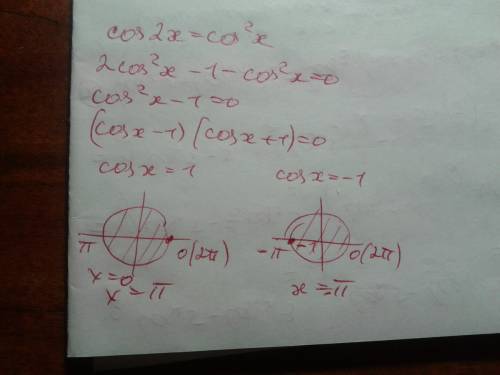 cos2x=cos²x
2cos²x-1-cos²x=0
cos²x-1=0
(cosx-1)(cosx+1)=0
cosx=1 cosx=-1
π 0(2π) -π -1 0(2π)
x=0
x=π x=-π